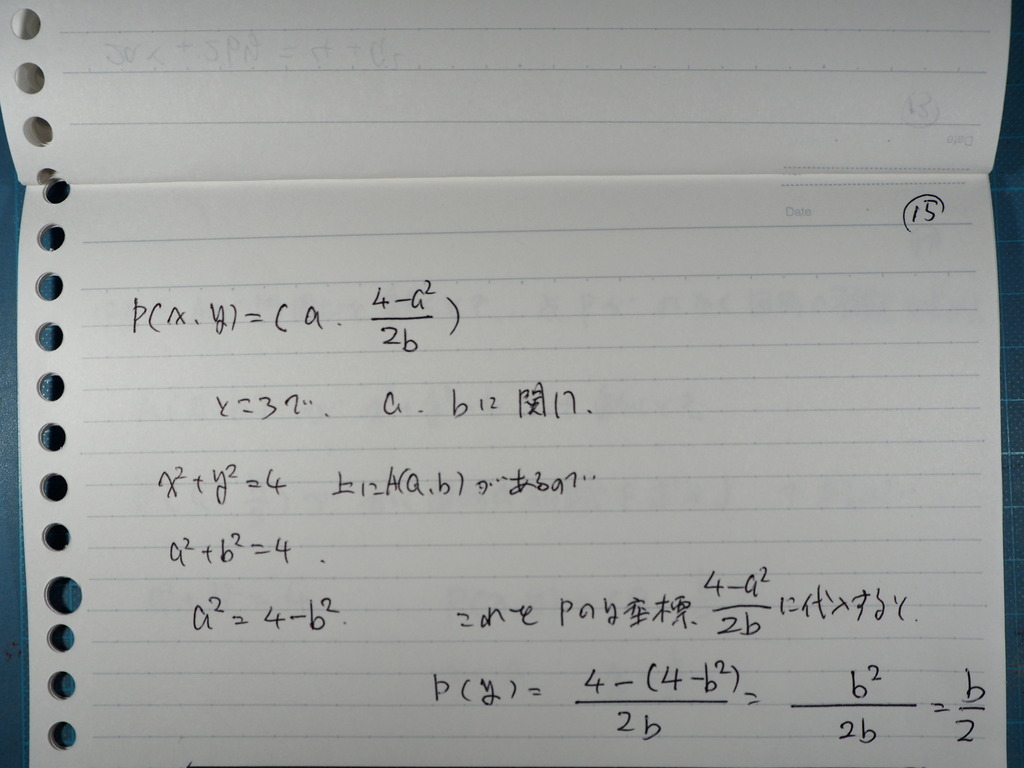 Date
⑮
P(x, y) = (a, \frac{4-a^2}{2b})
ところで、a、bに関して、
x² + y² = 4 上にA(a, b)があるので
a² + b² = 4.
a² = 4 - b². これを Pのy座標、\frac{4-a^2}{2b}に代入すると、
P(y) = \frac{4-(4-b^2)}{2b} = \frac{b^2}{2b} = \frac{b}{2}